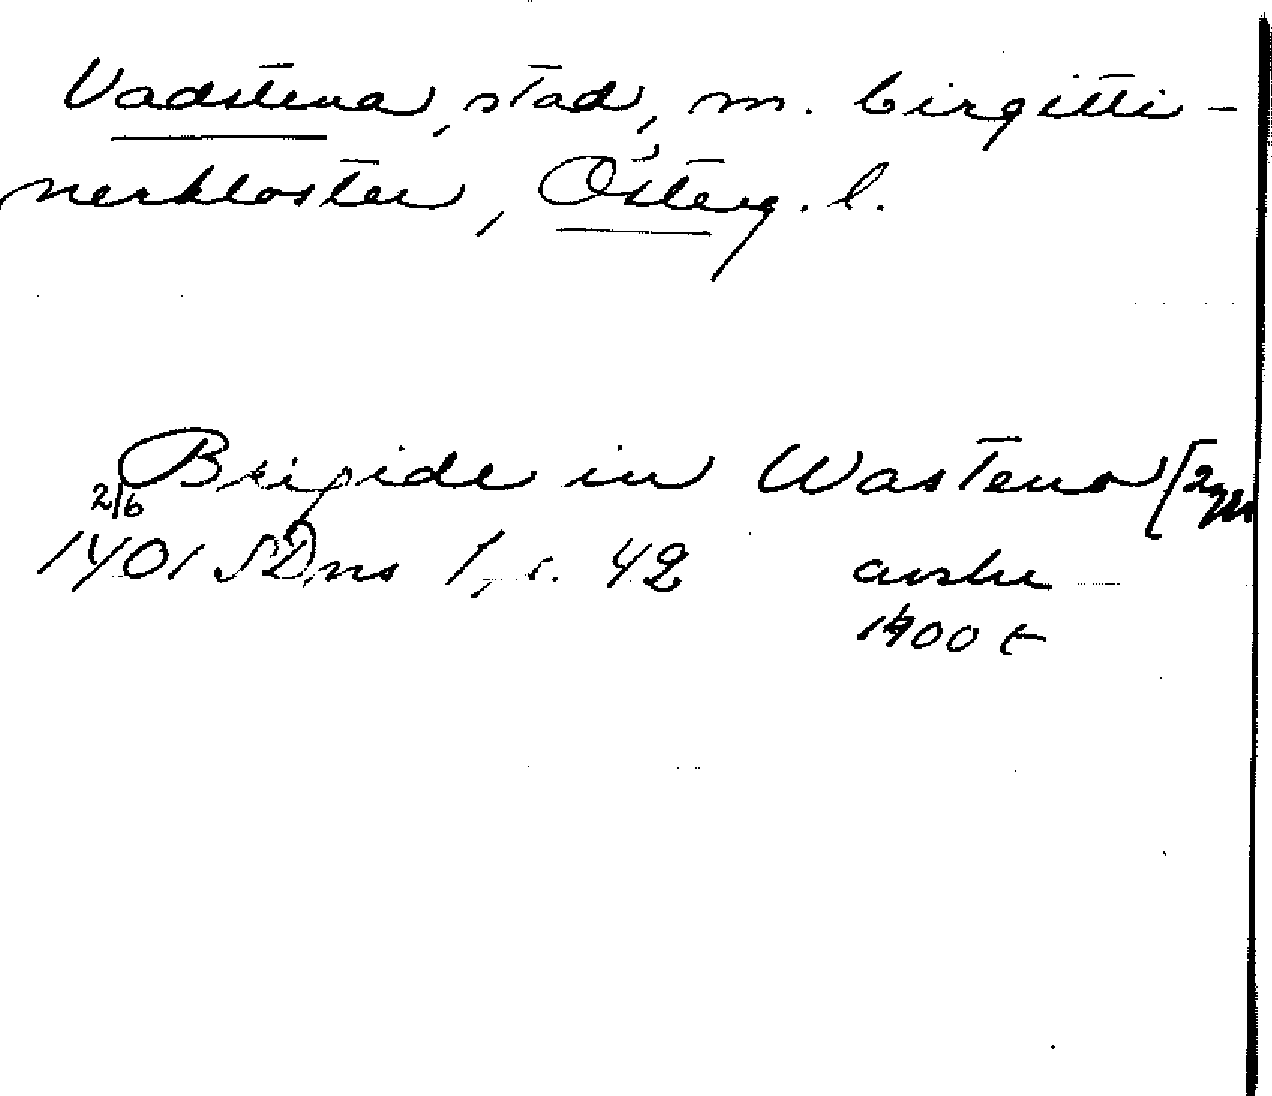 Vadstena, stad, m. birgitti-
nerkloster, Österg. l.
Brigide in Wastena
2/6
1401 SDns 1, s. 42
avskr
1400 t